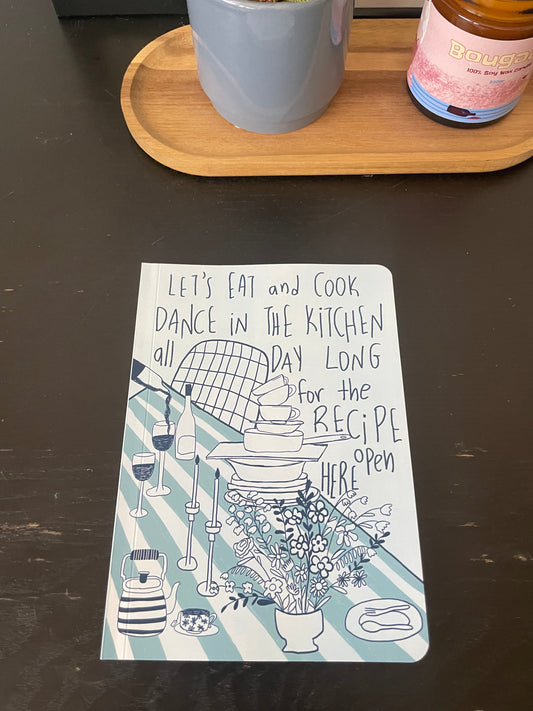 Bouga
100% Soy Wax Candle
LET'S EAT and COOK
DANCE iN THE KiTCHEN
all DAY LONG
for the
RECiPE
HERE open